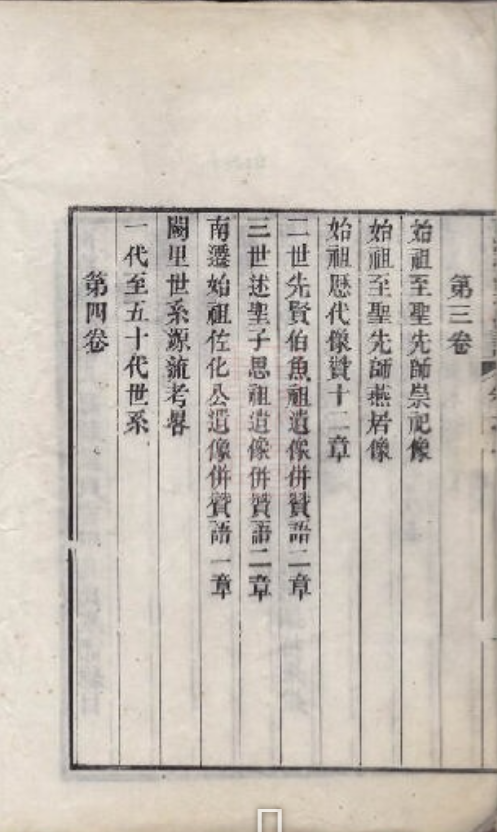 第三卷
始祖至聖先師崇祀像
始祖至聖先師燕居像
始祖歷代像贊十二章
二世先賢伯魚祖遺像併贊語二章
三世述聖子思祖遺像併贊語二章
南遷始祖佐化公遺像併贊語一章
闕里世系源流考畧
一代至五十代世系
第四卷